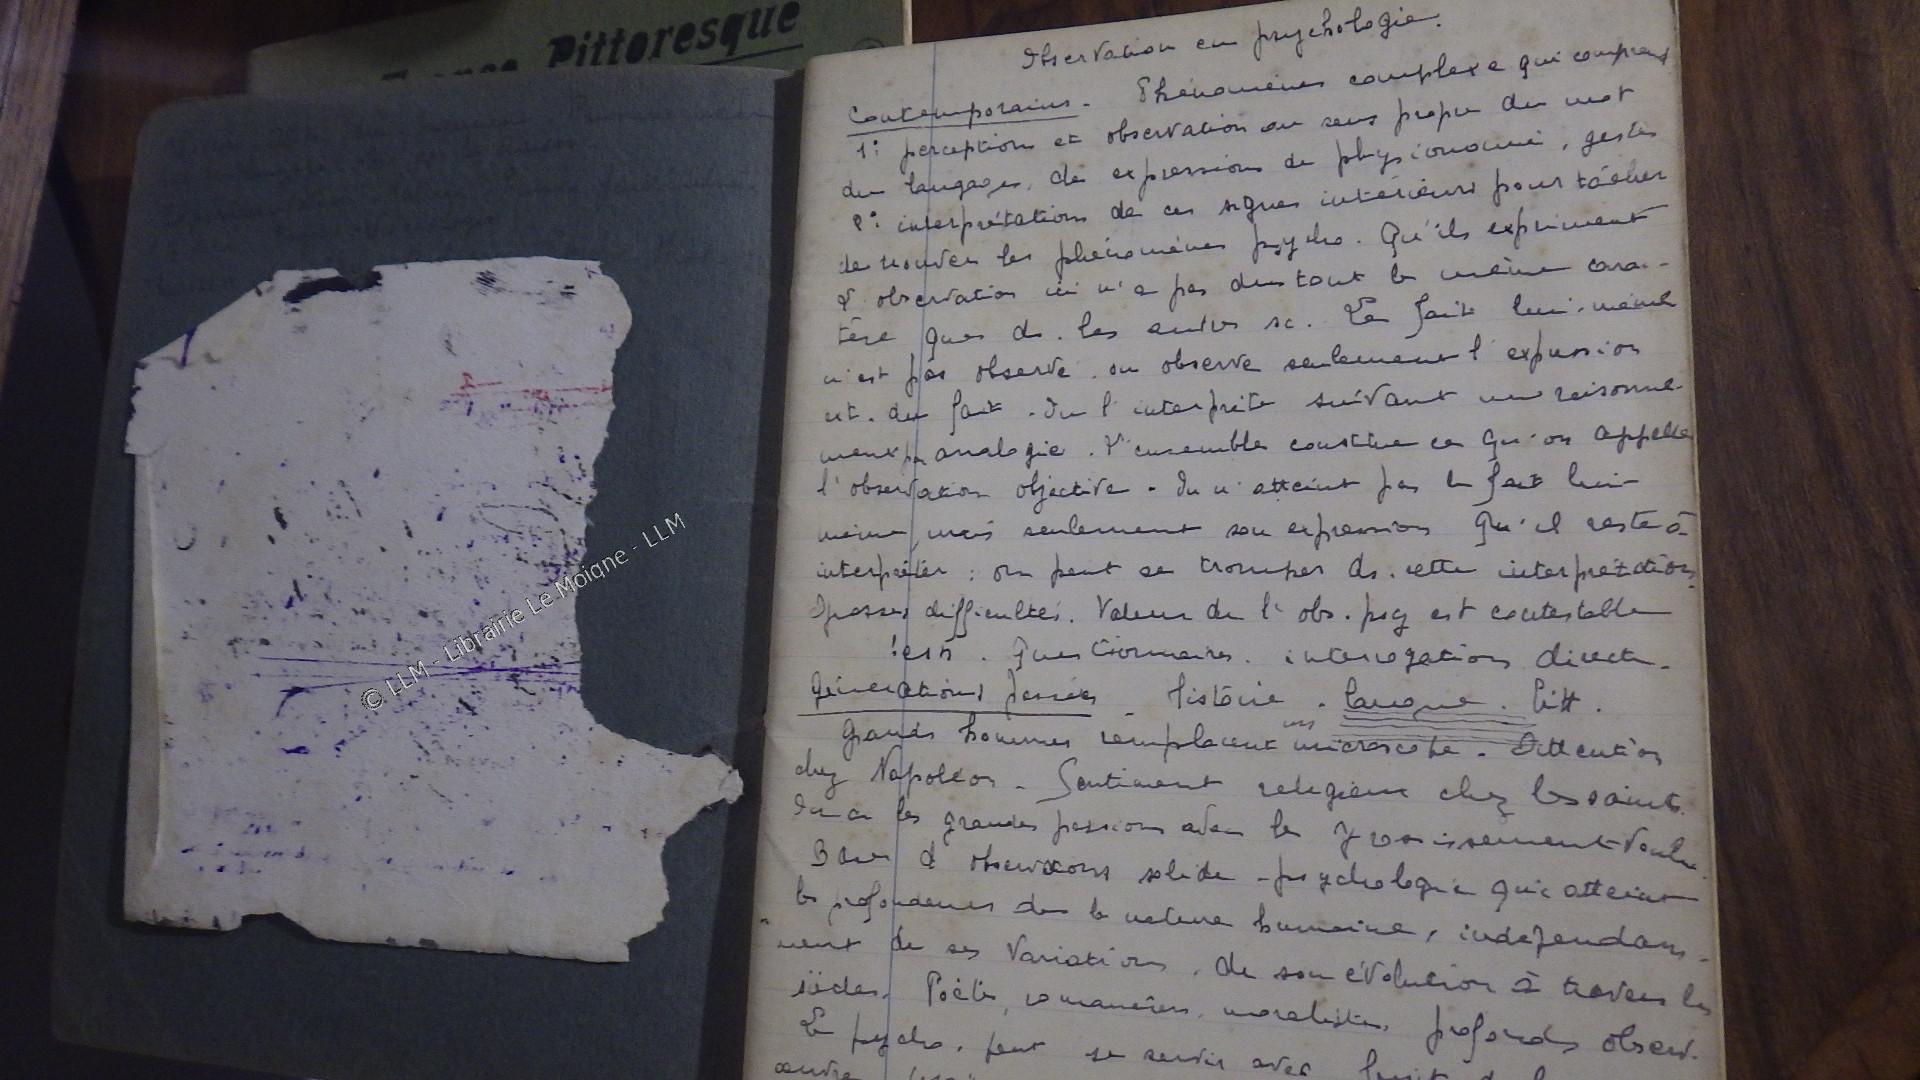 France Pittoresque
Observation en psychologie.
Contemporains. Phénomènes complexe qui comprend
1: perceptions et observation au sens propre du mot
du langage, de expressions de physionomie, gestes
2: interprétations de ces signes intérieurs pour tâcher
de trouver les phénomènes psycho. Qu'ils expriment
L'observation ici n'a pas du tout le même carac-
tère que ds. les autres sc. Le fait lui-même
n'est pas observé. on observe seulement l'expression
ext. du fait. On l'interprète suivant un raisonne-
ment par analogie. L'ensemble constitue ce qu'on appelle
l'observation objective. On n'atteint pas le fait lui-
même, mais seulement son expression Qu'il reste à
interpréter: on peut se tromper ds. cette interprétation
grosses difficultés. Valeur de l'obs. psy est contestable
Questionnaires. interrogations directe.
générations passées. Histoire. langue. litt.
Grands hommes remplacent microscope. Attention
chez Napoléon. Sentiment religieux chez les saints.
On a les grandes passions avec le grossissement voulu.
Base d'observations solide - psychologie qui atteint
les profondeurs de la nature humaine, indépendam-
ment de ses variations, de son évolution à travers les
siècles. Poètes, romanciers, moralistes, profonds observ.
Le psycho. peut se servir avec
œuvre
© LLM - Librairie Le Moigne - LLM